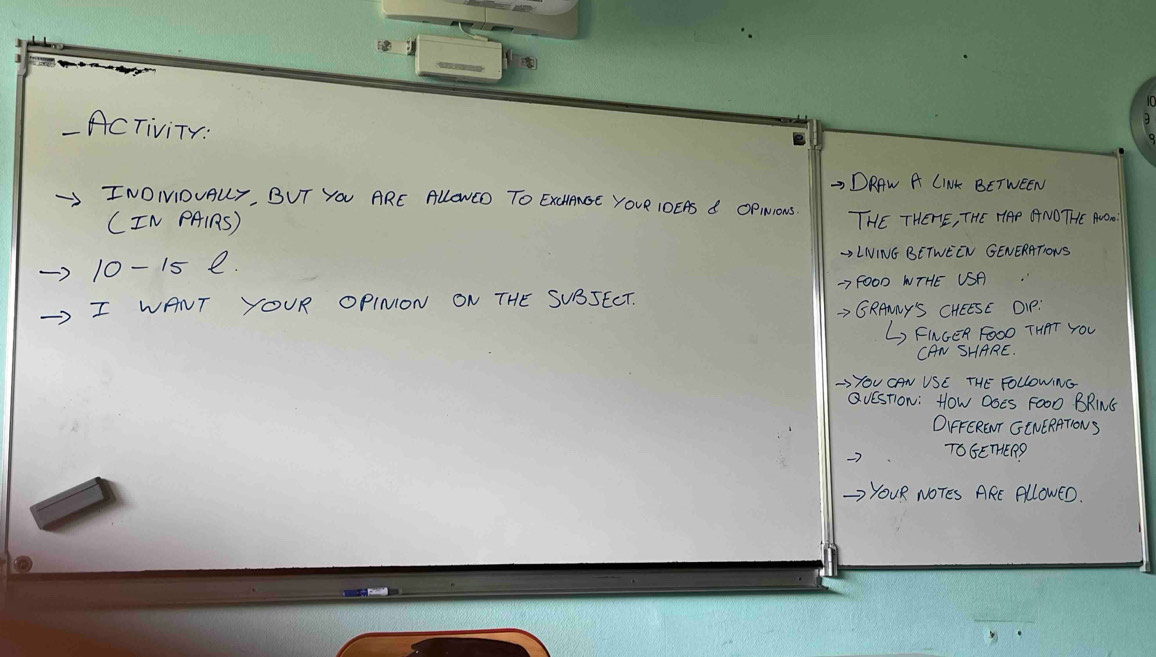 - ACTIVITY:
→ INDIVIDUALLY, BUT YOU ARE ALLOWED TO EXCHANGE YOUR IDEAS & OPINIONS.
(IN PAIRS)
→ 10 - 15 l.
→ I WANT YOUR OPINION ON THE SUBJECT.
→ DRAW A LINK BETWEEN
THE THEME, THE MAP AND THE AUDIO:
→ LIVING BETWEEN GENERATIONS
→ FOOD IN THE USA
→ GRANNY'S CHEESE DIP:
↳ FINGER FOOD THAT YOU
CAN SHARE.
→ YOU CAN USE THE FOLLOWING
QUESTION: HOW DOES FOOD BRING
DIFFERENT GENERATIONS
→ . TOGETHER?
→ YOUR NOTES ARE ALLOWED.
10
9
8